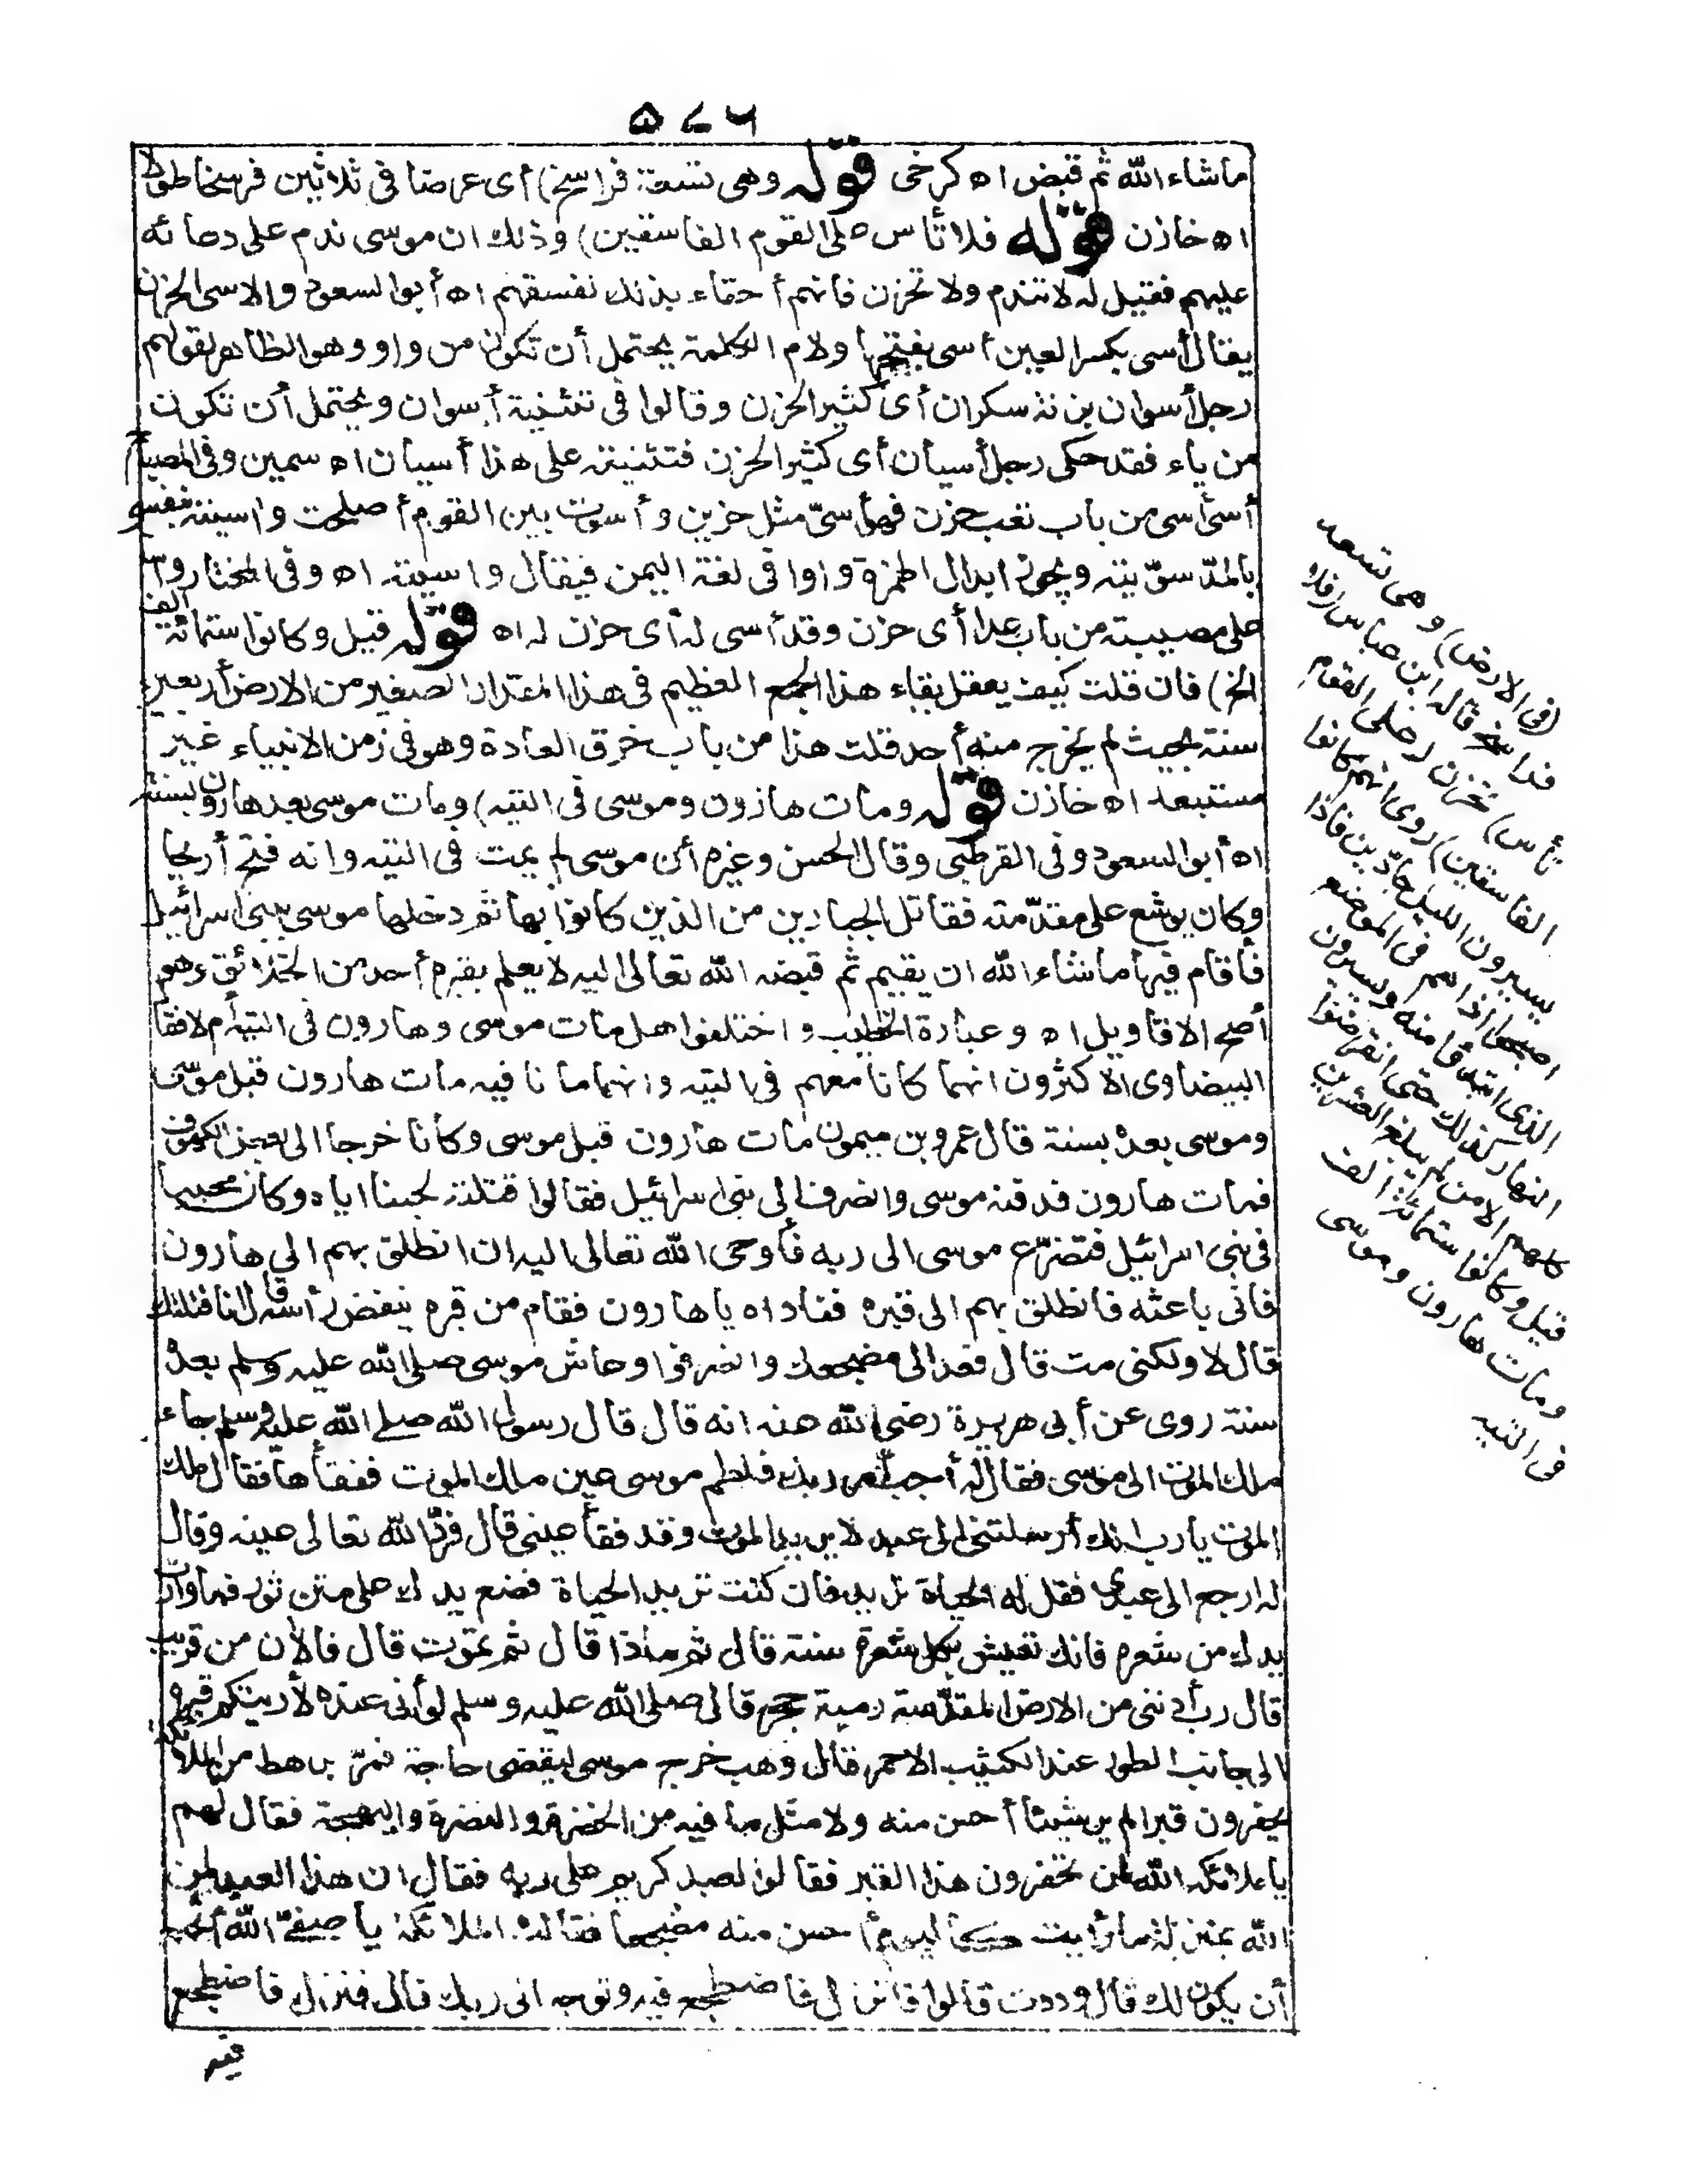 ٥٧٦
ماشاء الله ثم قبض اه كرخى قوله وهى تسعة فراسخ) أى عرضا فى ثلاثين فرسخا طولا
اه خازن قوله فلا تأس على القوم الفاسقين) وذلك ان موسى ندم على دعائه
عليهم فقيل له لا تندم ولا تحزن فانهم أحقاء بذلك لفسقهم اه أبوالسعود والاسى الحزن
يقال أسى بكسر العين أسى بفتحها ولام الكلمة يحتمل أن تكون من واو وهو الظاهر لقولهم
رجل أسوان بزنة سكران أى كثير الحزن وقالوا فى تثنية أسوان ويحتمل أن تكون
من ياء فقد حكى رجل أسيان أى كثير الحزن فتثنيته على هذا أسيان اه سمين وفى المصباح
أسى أسى من باب تعب حزن فهو أسىّ مثل حزين وأسوت بين القوم أصلحت واسيته بنفسى
بالمدّ سوّيته ويجوز ابدال الهمزة واوا فى لغة اليمن فيقال واسيته اه وفى المختار وأسى
على مصيبته من باب عدا أى حزن وقد أسى له أى حزن له اه قوله قيل وكانوا ستمائة ألف
الخ) فان قلت كيف يعقل بقاء هذا الجمع العظيم فى هذا المقدار الصغير من الارض أربعين
سنة بحيث لم يخرج منه أحد قلت هذا من باب خرق العادة وهو فى زمن الانبياء غير
مستبعد اه خازن قوله ومات هارون وموسى فى التيه) ومات موسى بعد هارون بسنة
اه أبوالسعود وفى القرطبى وقال الحسن وغيره أن موسى لم يمت فى التيه وانه فتح أريحا
وكان يوشع على مقدّمته فقاتل الجبارين من الذين كانوا بها ثم دخلها موسى ببنى اسرائيل
فأقام فيها ماشاء الله ان يقيم ثم قبضه الله تعالى اليه لا يعلم بقبره أحد من الخلائق وهو
أصح الاقاويل اه وعبارة الخطيب واختلفوا هل مات موسى وهارون فى التيه أم لا فقال
البيضاوى الاكثرون انهما كانا معهم فى التيه وانهما ماتا فيه مات هارون قبل موسى
وموسى بعده بسنة قال عمرو بن ميمون مات هارون قبل موسى وكانا خرجا الى بعض الكهوف
فمات هارون فدفنه موسى وانصرف الى بنى اسرائيل فقالوا قتلته لحبنا اياه وكان محببا
فى بنى اسرائيل فتضرّع موسى الى ربه فأوحى الله تعالى اليه ان انطلق بهم الى هارون
فانى باعثه فانطلق بهم الى قبره فناداه يا هارون فقام من قبره ينفض رأسه قال أنا قتلتك
قال لا ولكنى مت قال فعد الى مضجعك وانصرفوا وعاش موسى صلى الله عليه وسلم بعده
سنة روى عن أبى هريرة رضى الله عنه انه قال قال رسول الله صلى الله عليه وسلم جاء
ملك الموت الى موسى فقال له أجب أمر ربك فلطم موسى عين ملك الموت ففقأها فقال ملك
الموت يارب انك أرسلتنى الى عبد لا يريد الموت وقد فقأ عينى قال فردّ الله تعالى عينه وقال
له ارجع الى عبدى فقل له الحياة تريد فان كنت تريد الحياة فضع يدك على متن ثور فما وارت
يدك من شعره فانك تعيش بكل شعرة سنة قال ثم ماذا قال ثم تموت قال فالآن من قريب
قال رب أدننى من الارض المقدّسة رمية حجر قال صلى الله عليه وسلم لو أنى عنده لأريتكم قبره
الى جانب الطور عند الكثيب الاحمر قال وهب خرج موسى ليقضى حاجة فمرّ برهط من الملائكة
يحفرون قبرا لم ير شيئا أحسن منه ولا مثل ما فيه من الخضرة والنضرة والبهجة فقال لهم
يا ملائكة الله لمن تحفرون هذا القبر فقالوا لعبد كريم على ربه فقال ان هذا العبد لمن
الله بمنزلة ما رأيت كاليوم أحسن منه مضجعا فقالت الملائكة يا صفىّ الله أتحب
أن يكون لك قال وددت قالوا فانزل فاضطجع فيه وتوجه الى ربك قال فنزل فاضطجع
فيه
(فى الارض) وهى تسعة
فراسخ قاله ابن عباس (فلا
تأس) تحزن (على القوم
الفاسقين) روى انهم كانوا
يسيرون الليل جادّين فاذا
اصبحوا اذا هم فى الموضع
الذى ابتدؤا منه ويسيرون
النهار كذلك حتى انقرضوا
كلهم الا من لم يبلغ العشرين
قيل وكانوا ستمائة ألف
ومات هارون وموسى
فى التيه